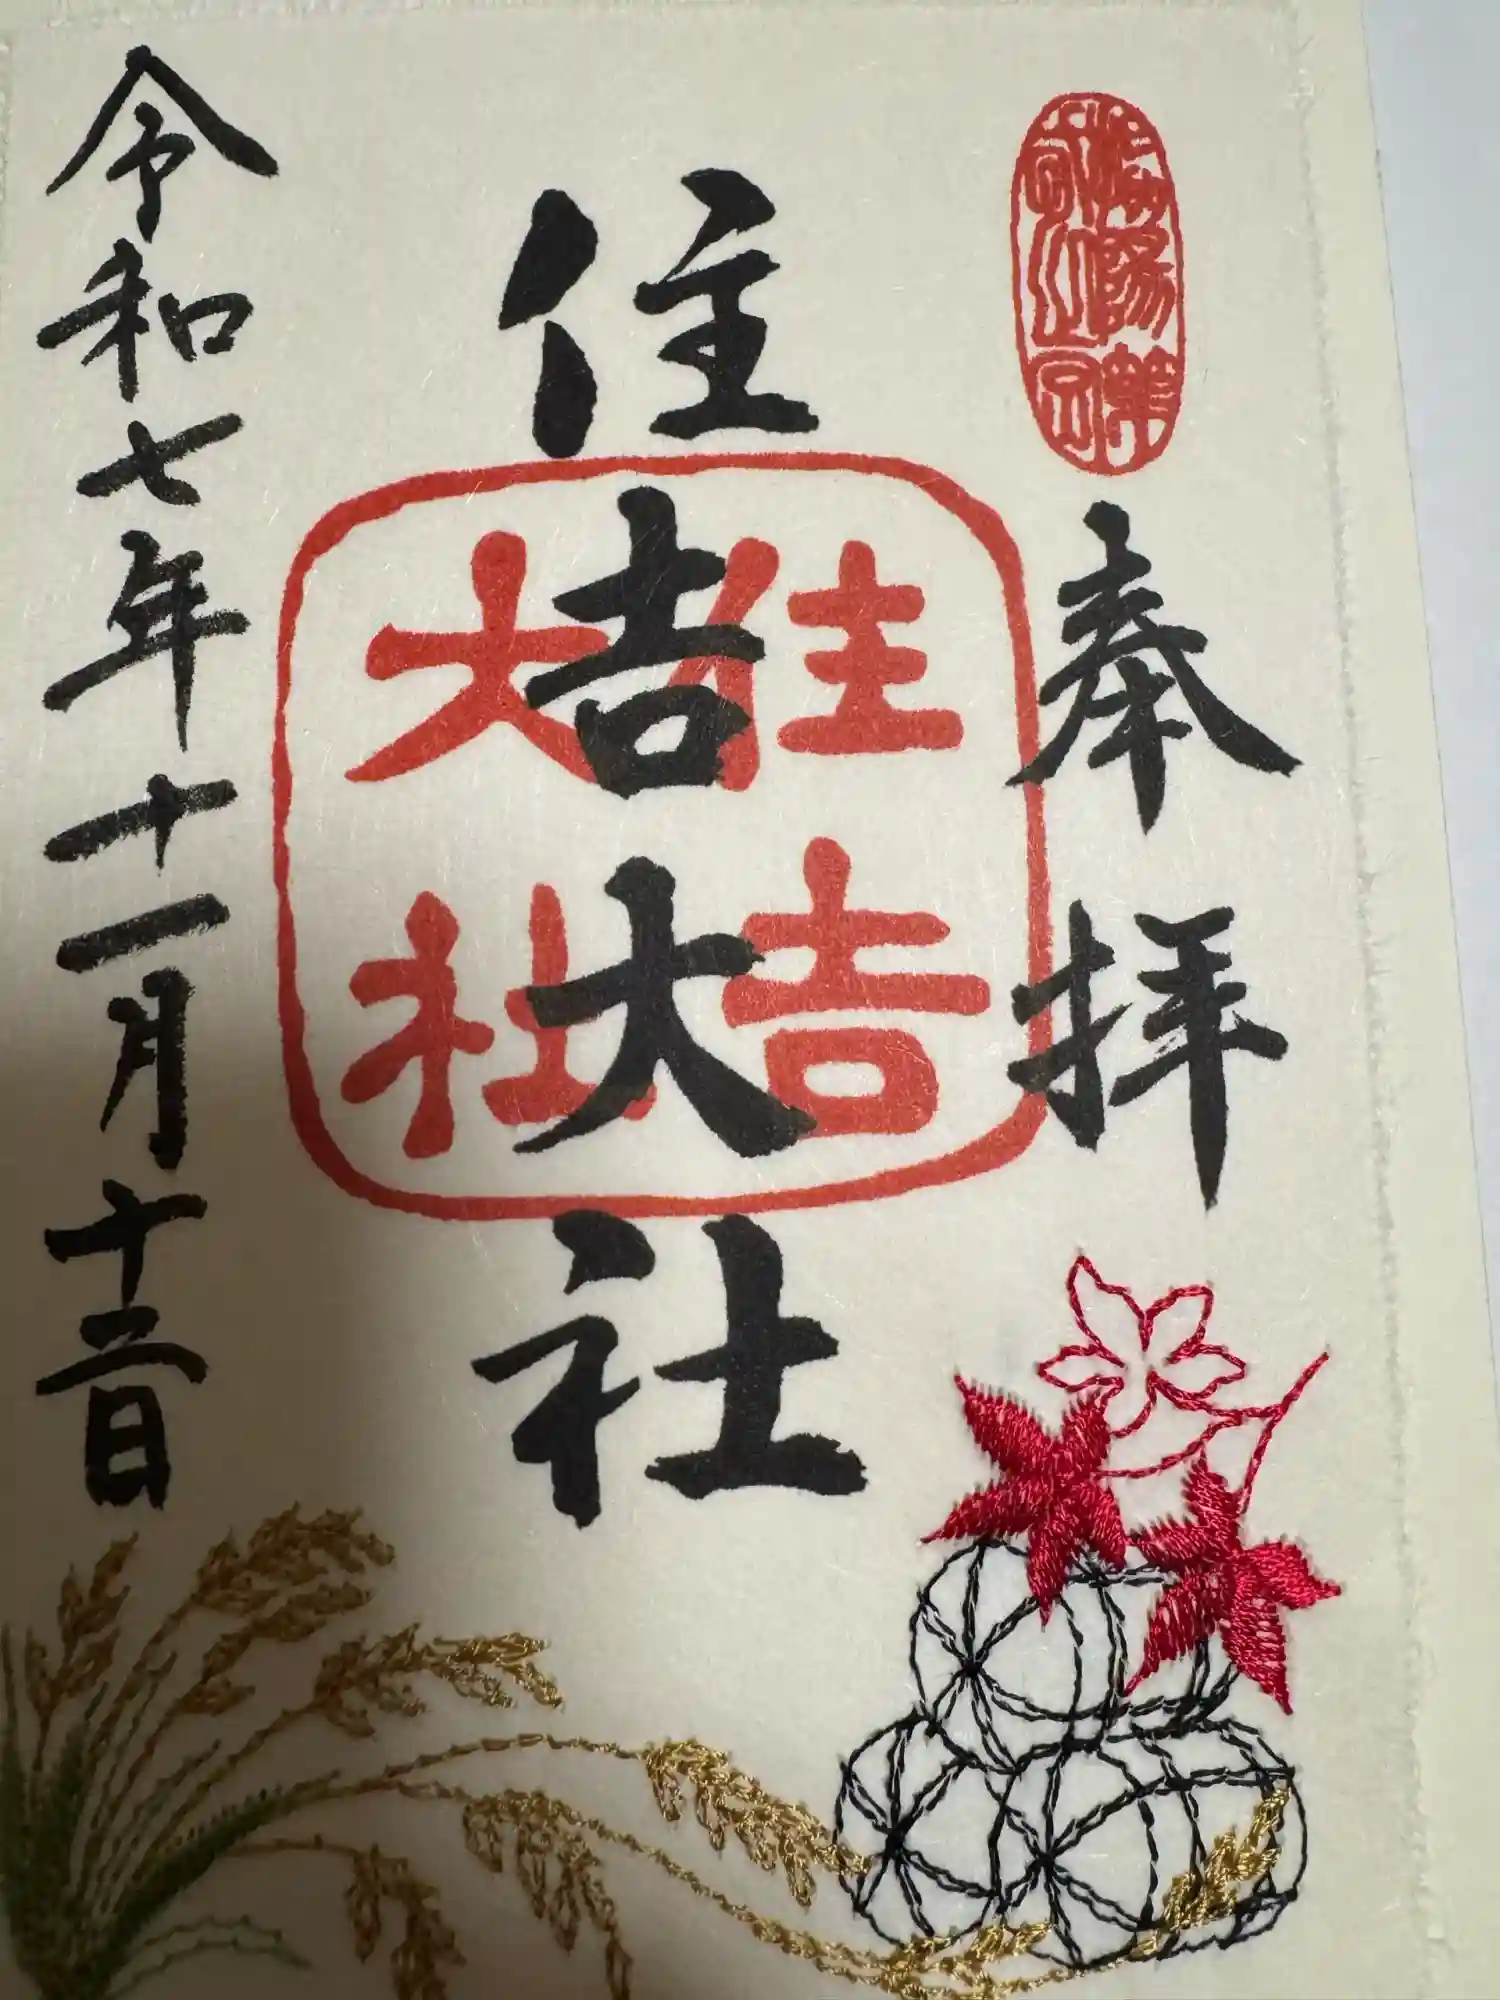 奉拝
住吉大社
住吉
大社
令和七年十一月十二日